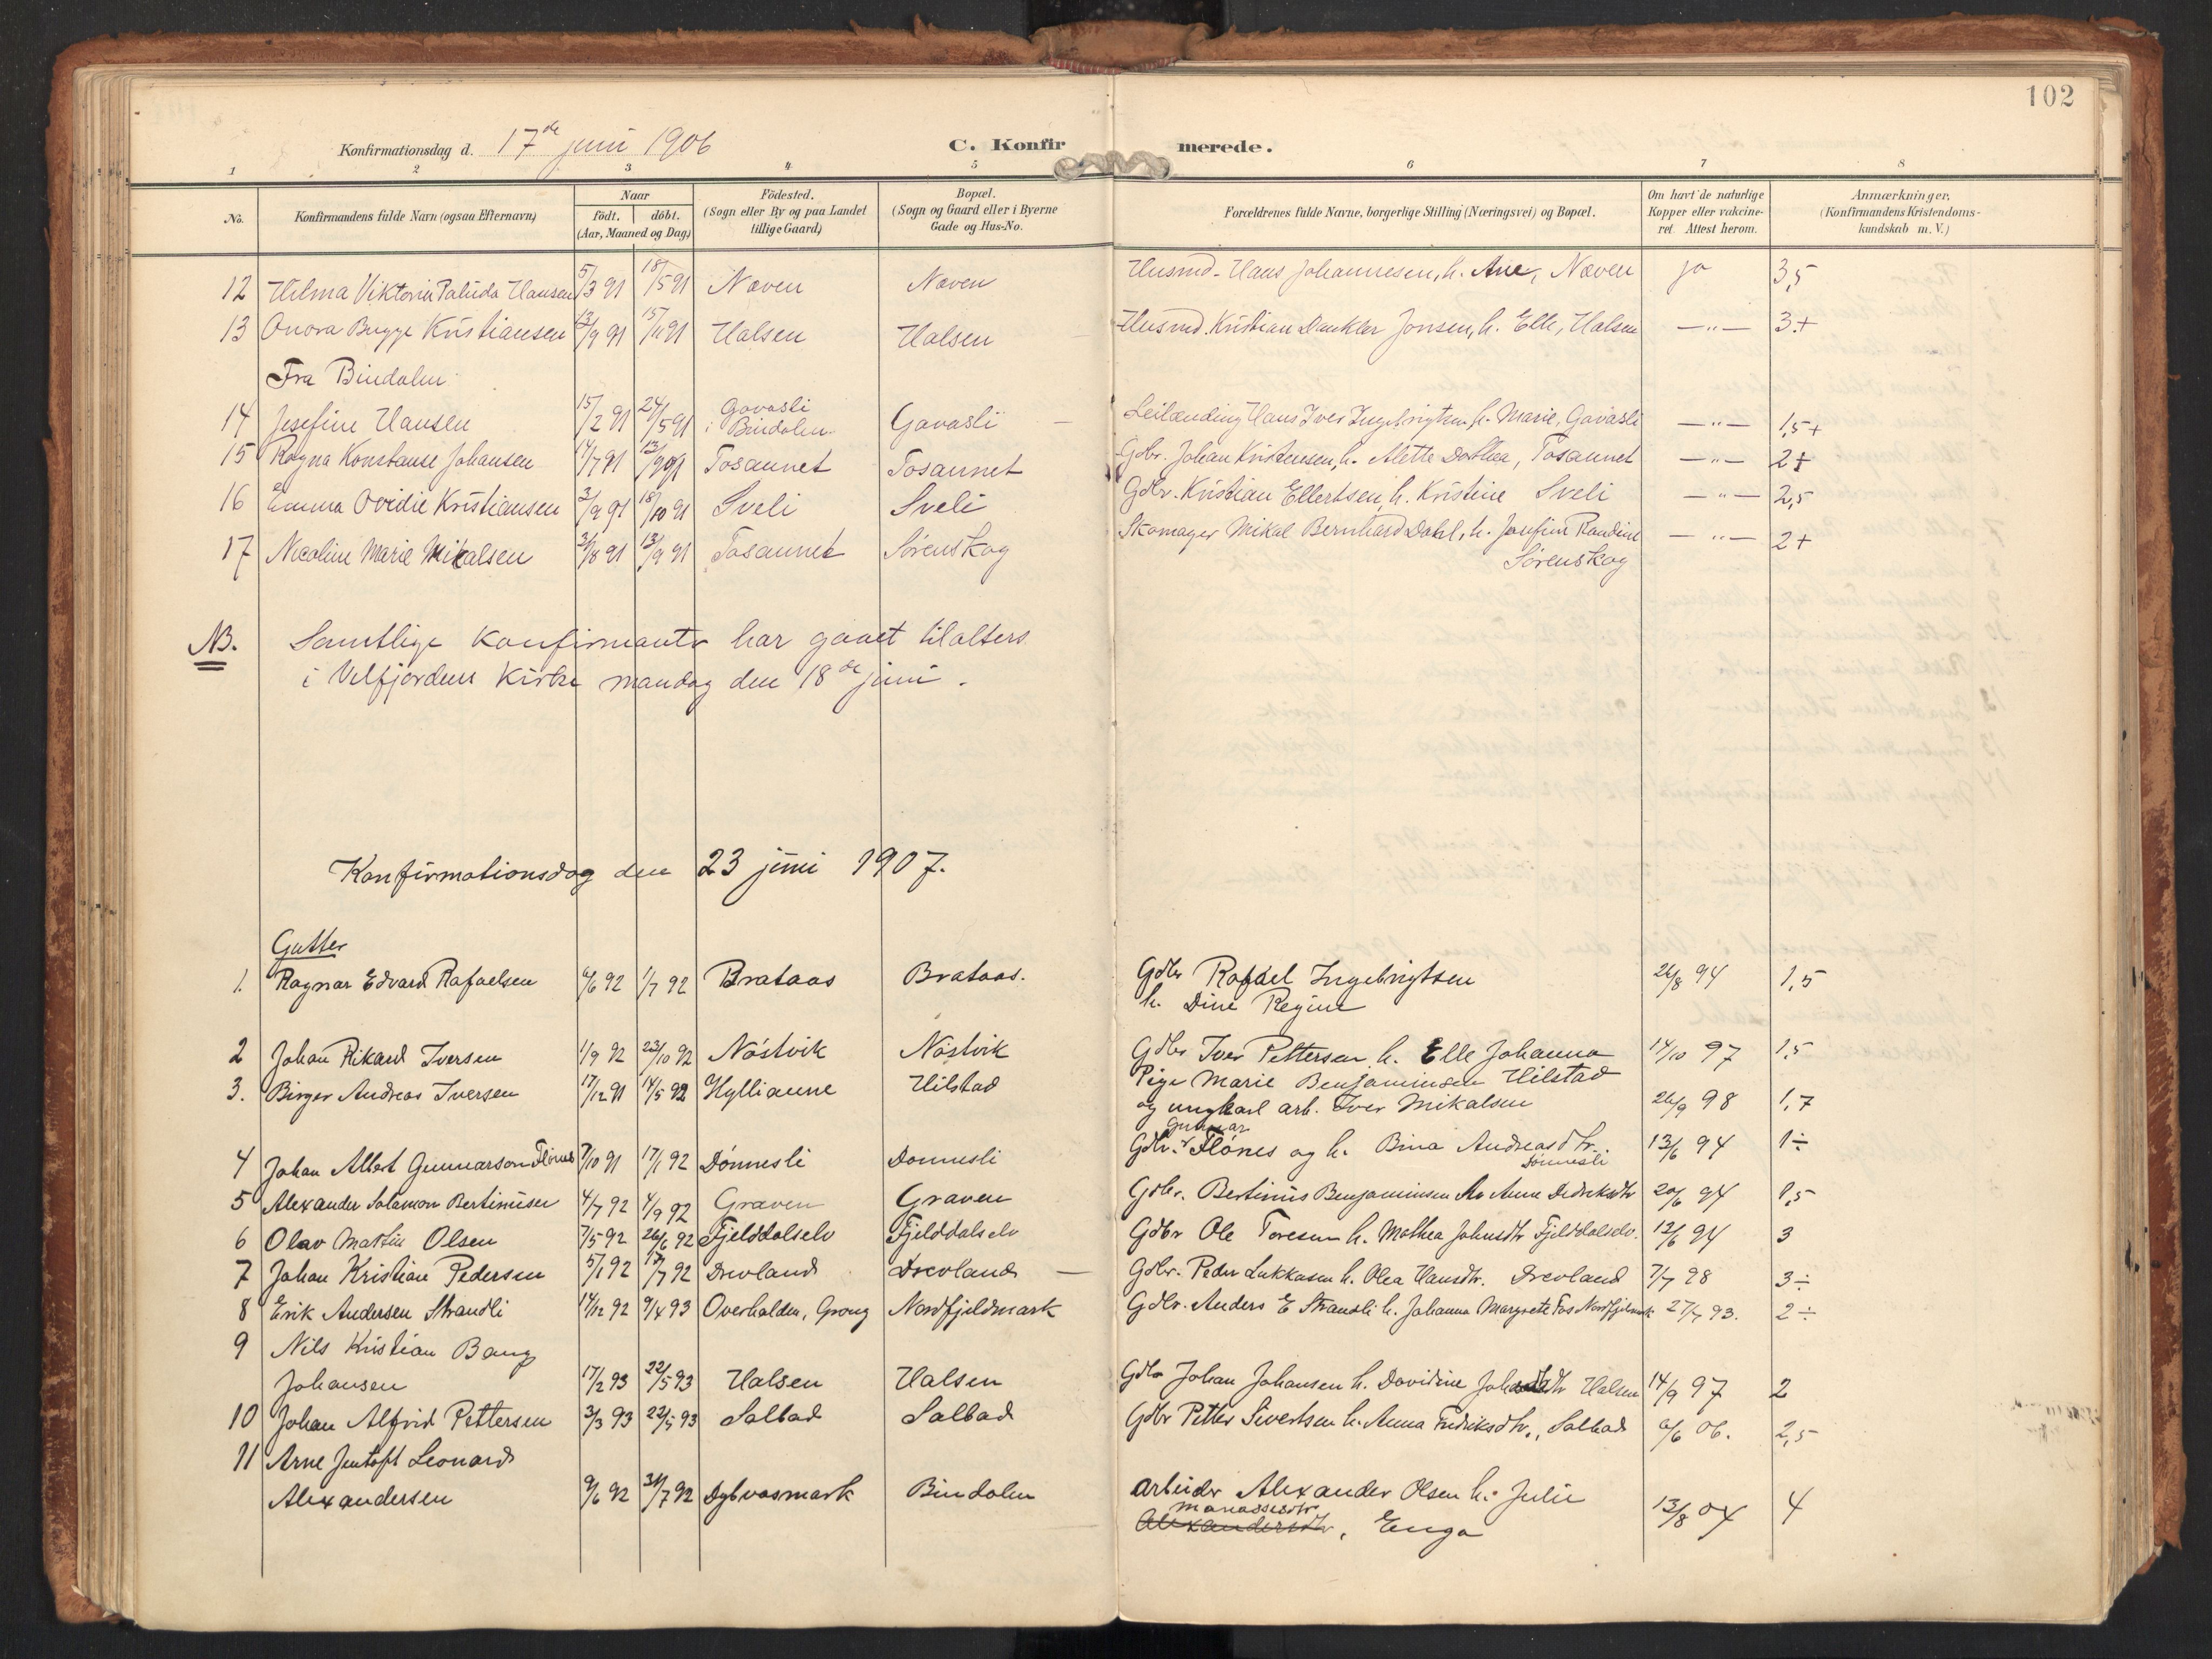 102
Konfirmationsdag d. 17de juni 1906 C. Konfir merede.
1 2 3 4 5 6 7 8
No. Konfirmandens fulde Navn (ogsaa Efternavn) Naar födt. döbt. (Aar, Maaned og Dag) Födested. (Sogn eller By og paa Landet tillige Gaard) Bopæl. (Sogn og Gaard eller i Byerne Gade og Hus-No. Forældrenes fulde Navne, borgerlige Stilling (Næringsvei) og Bopæl. Om havt de naturlige Kopper eller vakcineret. Attest herom. Anmærkninger, (Konfirmandens Kristendomskundskab m. V.)
12 Hilma Viktoria Paluda Hansen 5/3 91 18/5 91 Næven Næven Husmd. Hans Johannesen, h. Ane, Næven ja 3,5
13 Onora Bugge Kristiansen 13/9 91 15/11 91 Halsen Halsen Husmd. Kristian Dankler Jonsen, h. Elle, Halsen —„— 3+
Fra Bindalen
14 Josefine Hansen 15/2 91 24/5 91 Gavasli i Bindalen Gavasli Leilænding Hans Iver Ingebrigtsen h. Marie, Gavasli —„— 1,5+
15 Ragna Konstanse Johansen 14/7 91 13/9 91 Tosaunet Tosaunet Gdbr. Johan Kristensen, h. Alette Dorthea, Tosaunet —„— 2+
16 Emma Ovidie Kristiansen 3/9 91 18/10 91 Sveli Sveli Gdbr. Kristian Ellertsen, h. Kristine Sveli —„— 2,5
17 Nicoline Marie Mikalsen /8 91 13/9 91 Tosaunet Sørenskog Skomager Mikal Bernhard Dahl, h. Josefine Randine —„— 2+
Sørenskog
NB. Samtlige Konfirmanter har gaaet tilalters
i Velfjordens Kirke mandag den 18de juni.
Konfirmationsdag den 23 juni 1907.
Gutter
1. Ragnar Edvard Rafaelsen 6/6 92 1/7 92 Brataas Brataas. Gdbr Rafael Ingebrigtsen 26/8 94 1,5
h. Dine Regine
2 Johan Rikard Iversen 1/9 92 23/10 92 Nöstvik Nöstvik Gdbr Iver Pettersen h. Elle Johanna 14/10 97 1,5
3. Birger Andreas Iversen 17/12 91 14/5 92 Hylliaune Hilstad Pige Marie Benjaminsen Hilstad
og ungkarl arb. Iver Mikalsen 26/9 98 1,7
4 Johan Albert Gunnarson Flönes 7/10 91 17/1 92 Dönnesli Donnesli Gdbr. Gunnar Flónes og h. Bina Andreasdtr. Dönnesli 13/6 94 1÷
5 Alexander Salamon Bertinusen 4/7 92 4/9 92 Graven Graven Gdbr. Bertinus Benjaminsen h. Anne Dedreksdtr 20/6 94 1,5
6 Olav Martin Olsen 7/5 92 26/6 92 Fjelddalselv Fjelddalselv Gdbr Ole Toresen h. Mathea Johnsdtr Fjelddalselv. 12/6 94 3
7 Johan Kristian Pedersen 5/1 92 17/7 92 Drevland Drevland Gdbr. Peder Lukkasen h. Olea Hansdtr. Drevland 7/7 98 3÷
8 Erik Andersen Strandli 14/12 92 9/4 93 Overhalden, Grong Nordfjeldmark Gdbr. Anders E Strandli h. Johanna Margrete Fos Nordfjelmark 27/7 93. 2÷
9 Nils Kristian Bang
Johansen 17/2 93 22/5 93 Halsen Halsen Gdbr Johan Johansen h. Davidine Halsen 14/9 97 2
10 Johan Alfrid Pettersen 3/3 93 22/5 93 Salbad Salbad Gdbr Petter Sivertsen h. Anna Fredriksdtr., Salbad 6/6 06. 2,5
11 Arne Jentoft Leonard
Alexandersen 9/6 92 31/7 92 Dybvasmark Bindalen Arbeider Alexander Olsen h. Julie 13/8 04 4
Manassesdtr
Alexandersdtr, Enga